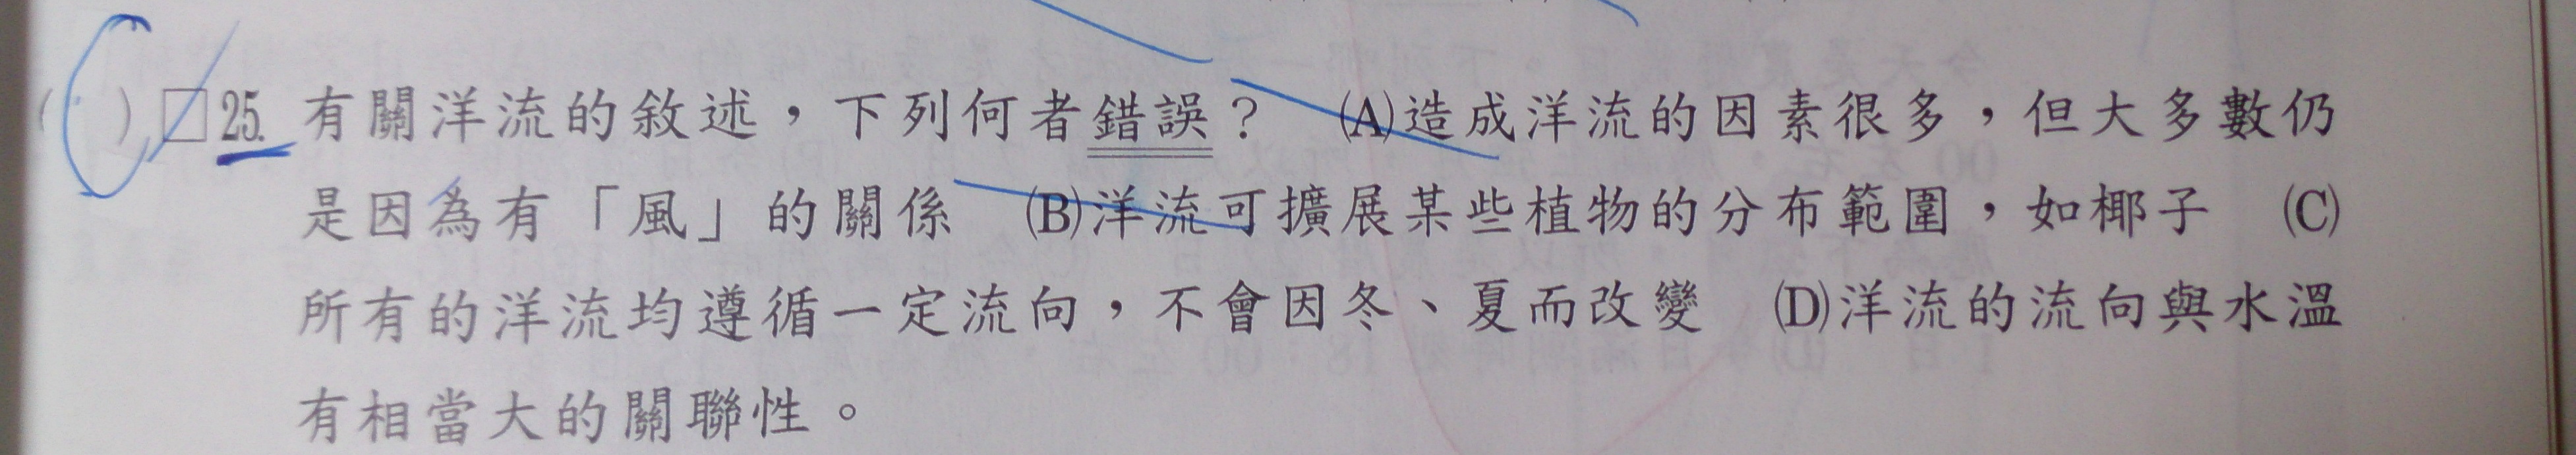 ( ) □25. 有關洋流的敘述，下列何者錯誤？ (A)造成洋流的因素很多，但大多數仍
是因為有「風」的關係 (B)洋流可擴展某些植物的分布範圍，如椰子 (C)
所有的洋流均遵循一定流向，不會因冬、夏而改變 (D)洋流的流向與水溫
有相當大的關聯性。